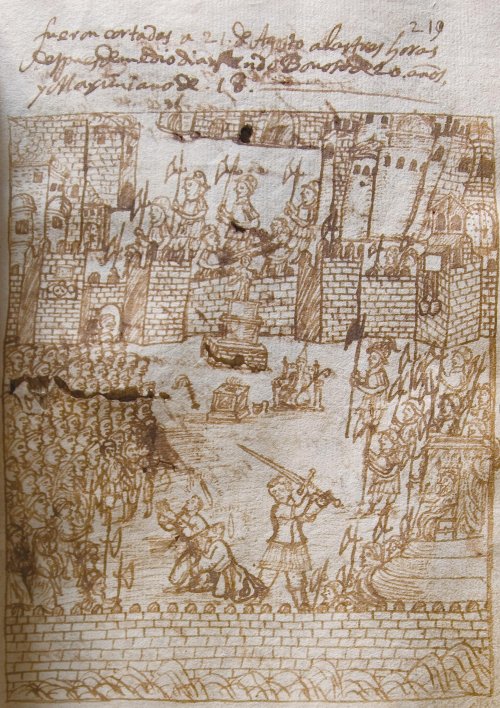 219
fueron cortadas a 21. de Agosto a las tres horas
despues de medio dia. Bonoso de 20. años,
y Maximiano de. 18.